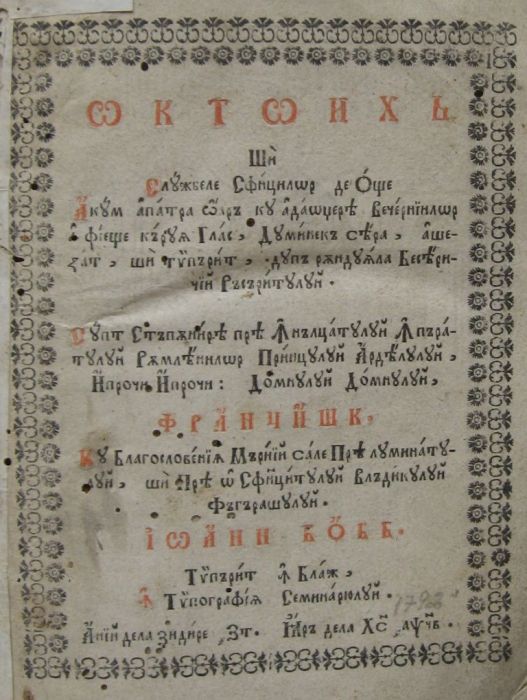 Ѡ К Т Ѡ И Х Ь
Шѝ
Слꙋжбеле Сфинцилѡр де Ѻбще
Акꙋм апатра ѡаръ кꙋ адаѡцерѣ Вечернїилѡр
фїеще кърꙋѧ Глас, Дꙋминекъ сѣра, аше-
ꙁат, ши тѷпърит, дꙋпъ рѫндꙋѧла Бесѣри-
чїй Ръсъритꙋлꙋй.
Сꙋпт Стъпѫнирѣ прѣ Ꙟнълцатꙋлꙋй Ꙟпъра-
тꙋлꙋй Рѫмлѣнилѡр Принцꙋлꙋй Ардѣлꙋлꙋй,
Ипрочи Ипрочи: Домнꙋлꙋй Домнꙋлꙋй,
ФРАНЧИШК,
Кꙋ Благословенїѧ Мърїїй сале Прѣ лꙋминатꙋ-
лꙋй, ши Прѣ ѡ Сфинцитꙋлꙋй Влъдикꙋлꙋй
Фъгърашꙋлꙋй.
ІѠАНН БОББ.
Тѷпърит ꙟ Блаж,
ꙟ Тѷпографїѧ Семинарюлꙋй.
Анїй дела Зидире ҂ЗТ. Ꙗръ дела ХС҃ ҂АѰЧВ.
1792